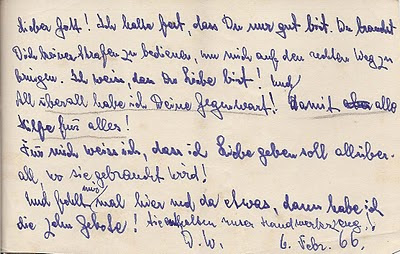 Lieber Gott! Ich halte fest, dass Du nur gut bist. Du brauchst
Dich keiner Strafen zu bedienen, um mich auf den rechten Weg zu
bringen. Ich weiss, dass Du Liebe bist! Und
All überall habe ich Deine Gegenwart! Damit aber alle
Hilfe für alles!
Für mich weiss ich, dass ich Liebe geben soll allüber-
all, wo sie gebraucht wird!
Und fehlt mir mal hier und da etwas, dann habe ich
die zehn Gebote! Sie enthalten unser Handwerkszeug!
D. W. 6. Febr. 66.